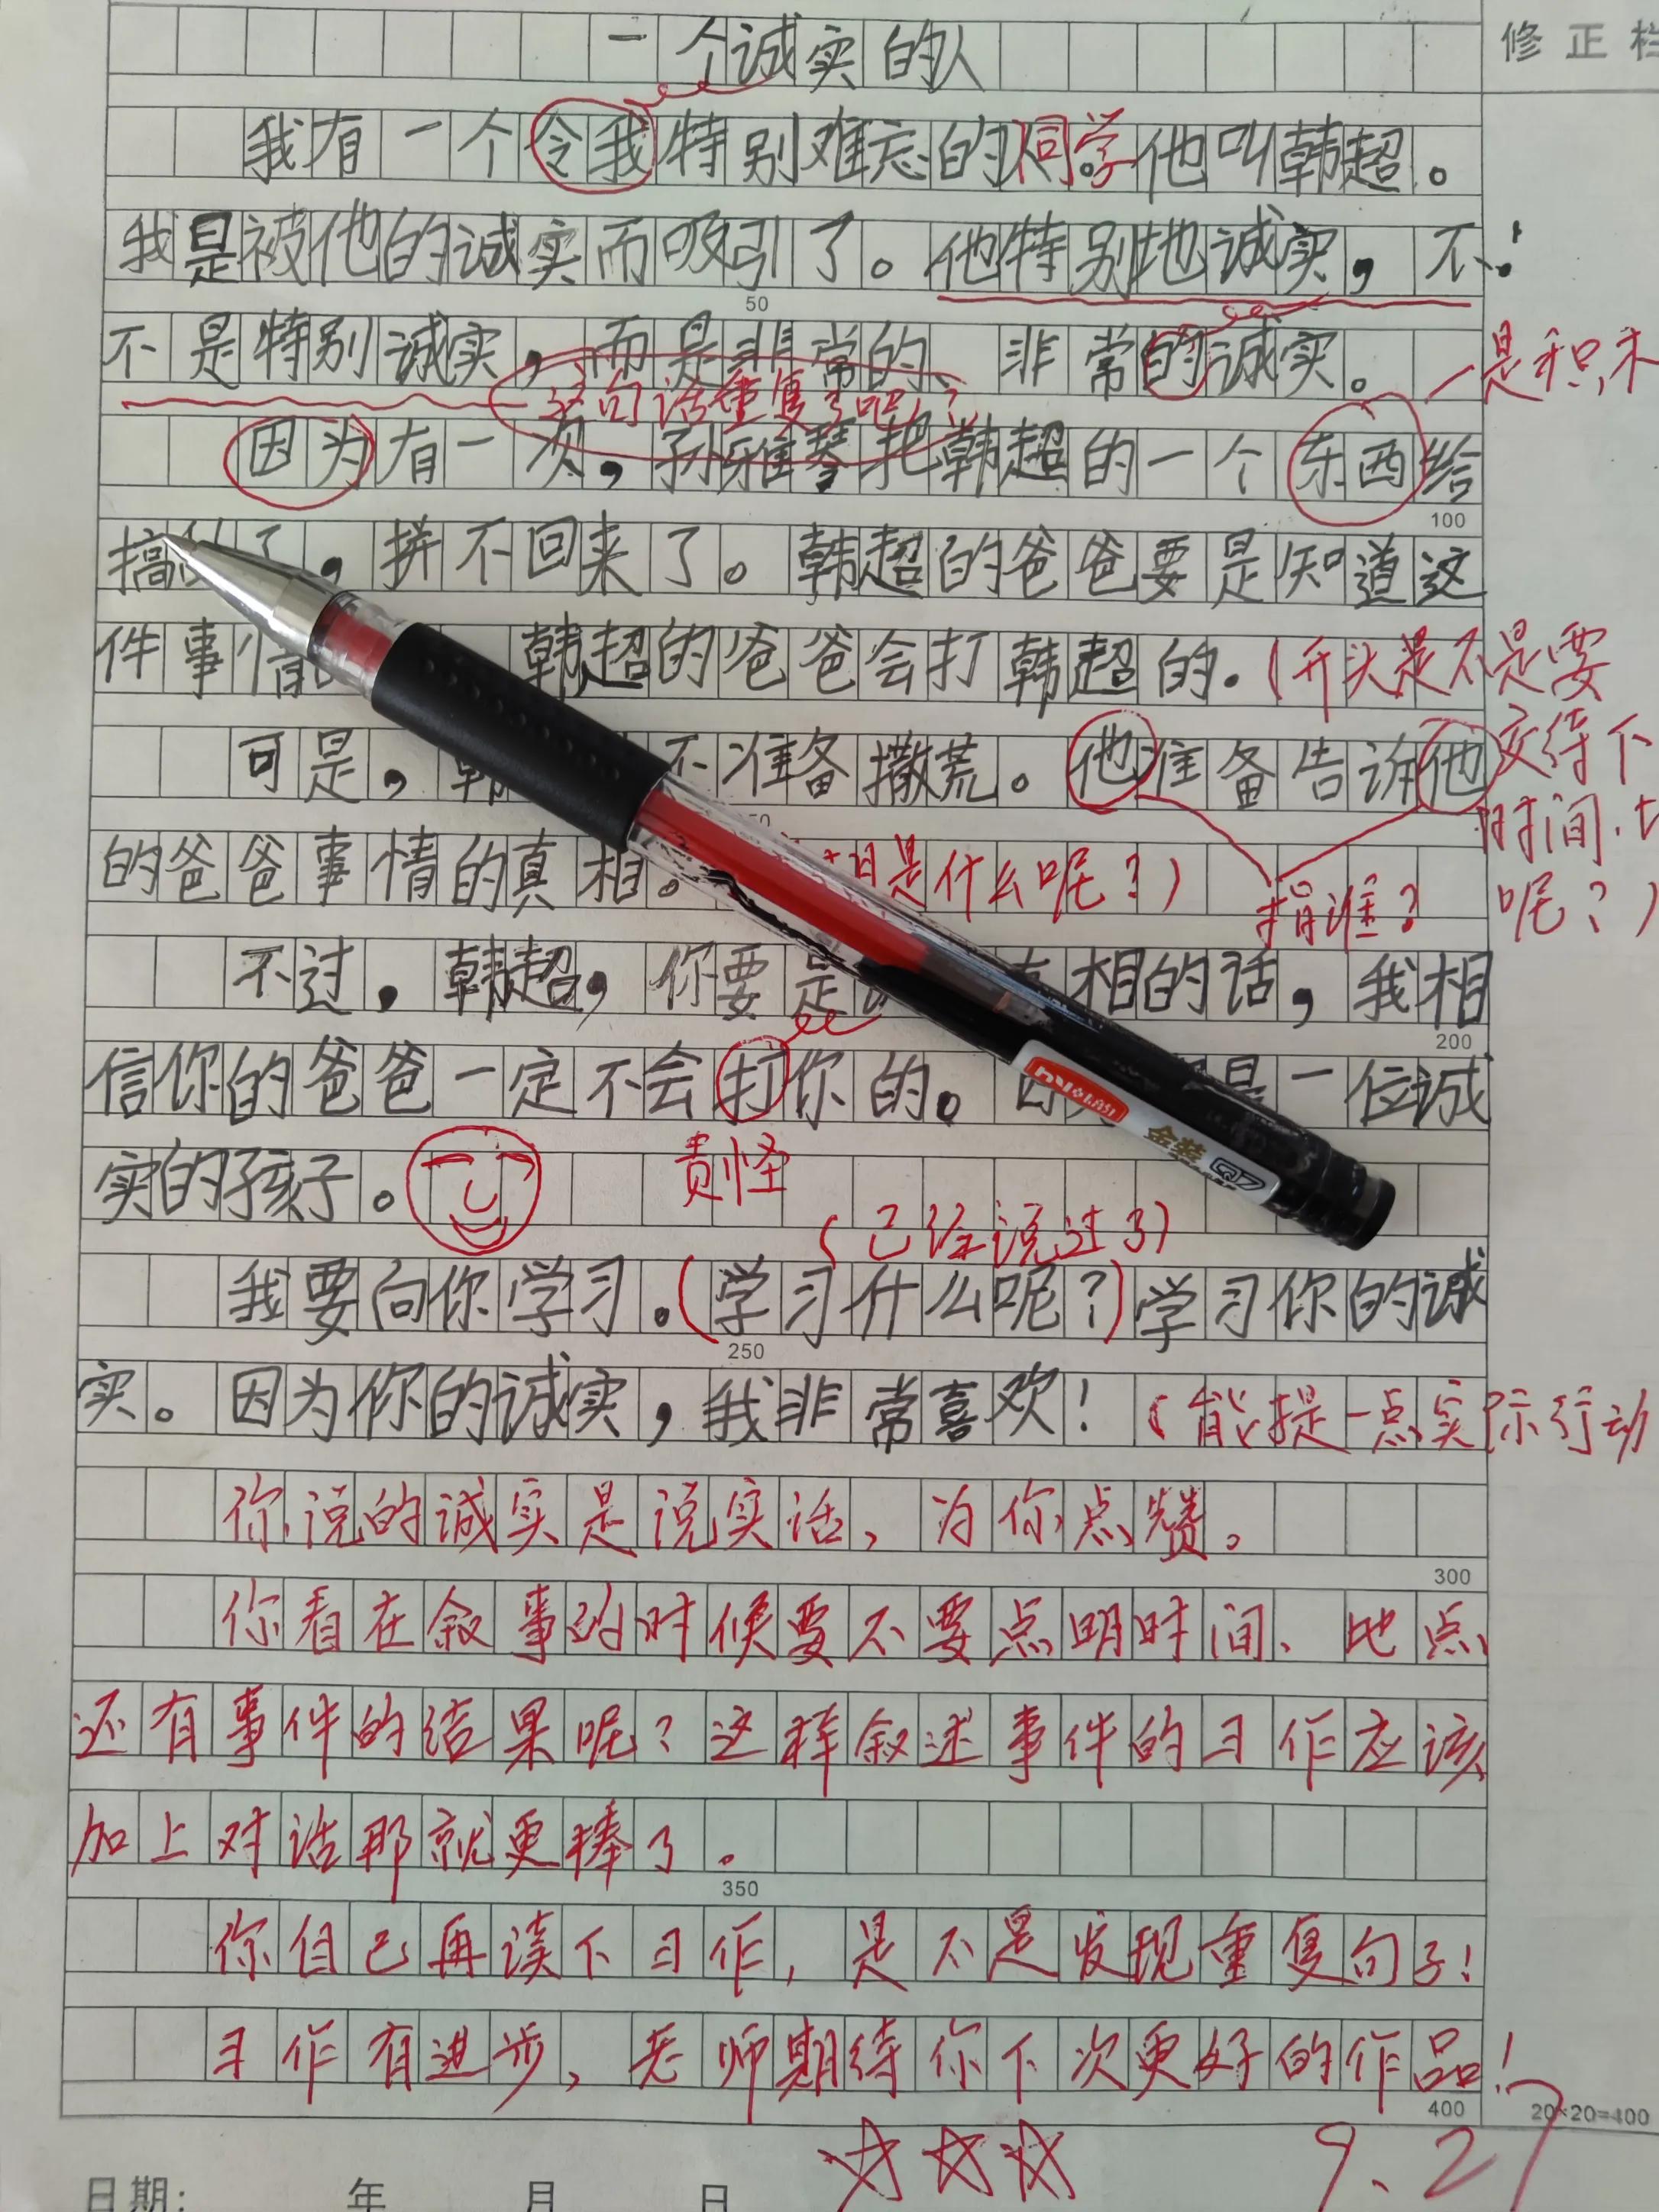 一个诚实的人
修正栏
我有一个令我特别难忘的同学他叫韩超。
我是被他的诚实而吸引了。他特别地诚实，不
50
不是特别诚实，而是非常的、非常的诚实。
一是积木
这句话重复了吧？
因为有一次，孙雅琴把韩超的一个东西给
100
搞了，拼不回来了。韩超的爸爸要是知道这
件事情 韩超的爸爸会打韩超的。
（开头是不是要
交待下
时间、
呢？）
可是，韩 不准备撒荒。他准备告诉他
的爸爸事情的真相。
是什么呢？）
指谁？
不过，韩超，你要是 相的话，我相
200
信你的爸爸一定不会打你的。 是一位诚
实的孩子。
责怪
（已经说过了）
我要向你学习。（学习什么呢？）学习你的诚
250
实。因为你的诚实，我非常喜欢！
（能提一点实际行动
你说的诚实是说实话、为你点赞。
300
你看在叙事的时候要不要点明时间、地点、
还有事件的结果呢？这样叙述事件的习作应该
加上对话那就更棒了。
350
你自己再读下习作，是不是发现重复句子！
习作有进步，老师期待你下次更好的作品！
400
20×20=400
9.27
日期： 年 月 日
金装